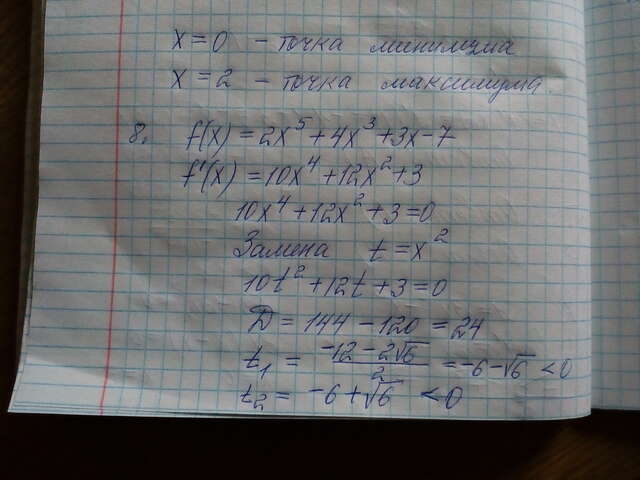 x = 0 - точка минимума
x = 2 - точка максимума.
8. f(x) = 2x⁵ + 4x³ + 3x - 7
f'(x) = 10x⁴ + 12x² + 3
10x⁴ + 12x² + 3 = 0
Замена t = x²
10t² + 12t + 3 = 0
D = 144 - 120 = 24
t₁ = (-12 - 2√6)/2 = -6 - √6 < 0
t₂ = -6 + √6 < 0